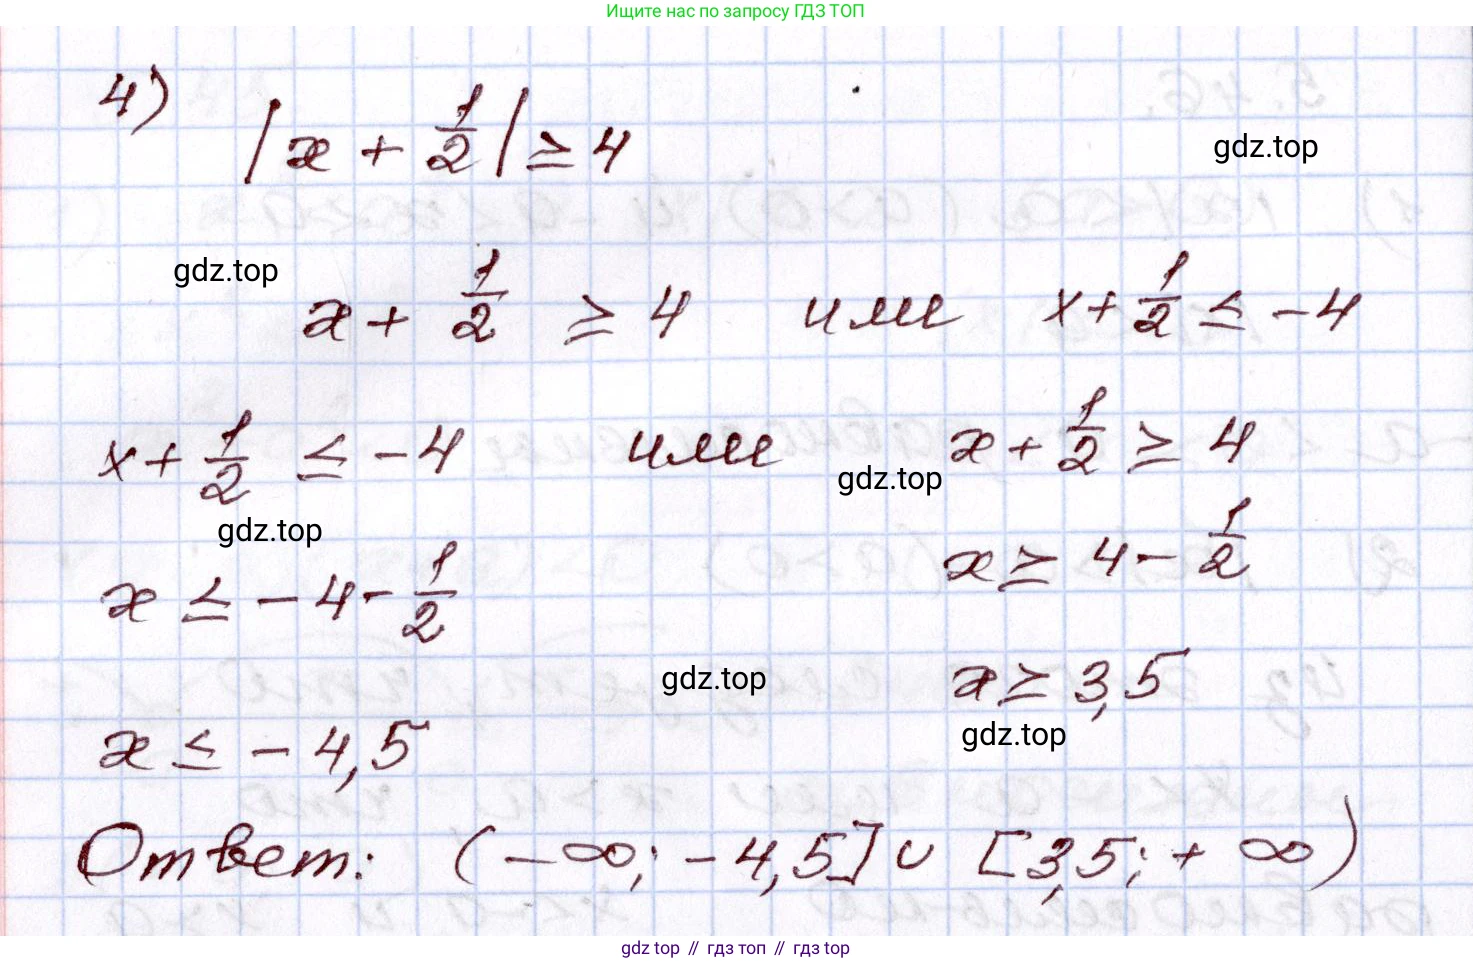 Ищите нас по запросу ГДЗ ТОП
4)
|x + 1/2| ≥ 4
gdz.top
gdz.top
x + 1/2 ≥ 4 или x + 1/2 ≤ -4
x + 1/2 ≤ -4 или x + 1/2 ≥ 4
gdz.top
gdz.top
x ≤ -4 - 1/2
x ≥ 4 - 1/2
gdz.top
x ≥ 3,5
gdz.top
x ≤ -4,5
Ответ: (-∞; -4,5] ∪ [3,5; +∞)
gdz.top // гдз топ // гдз top